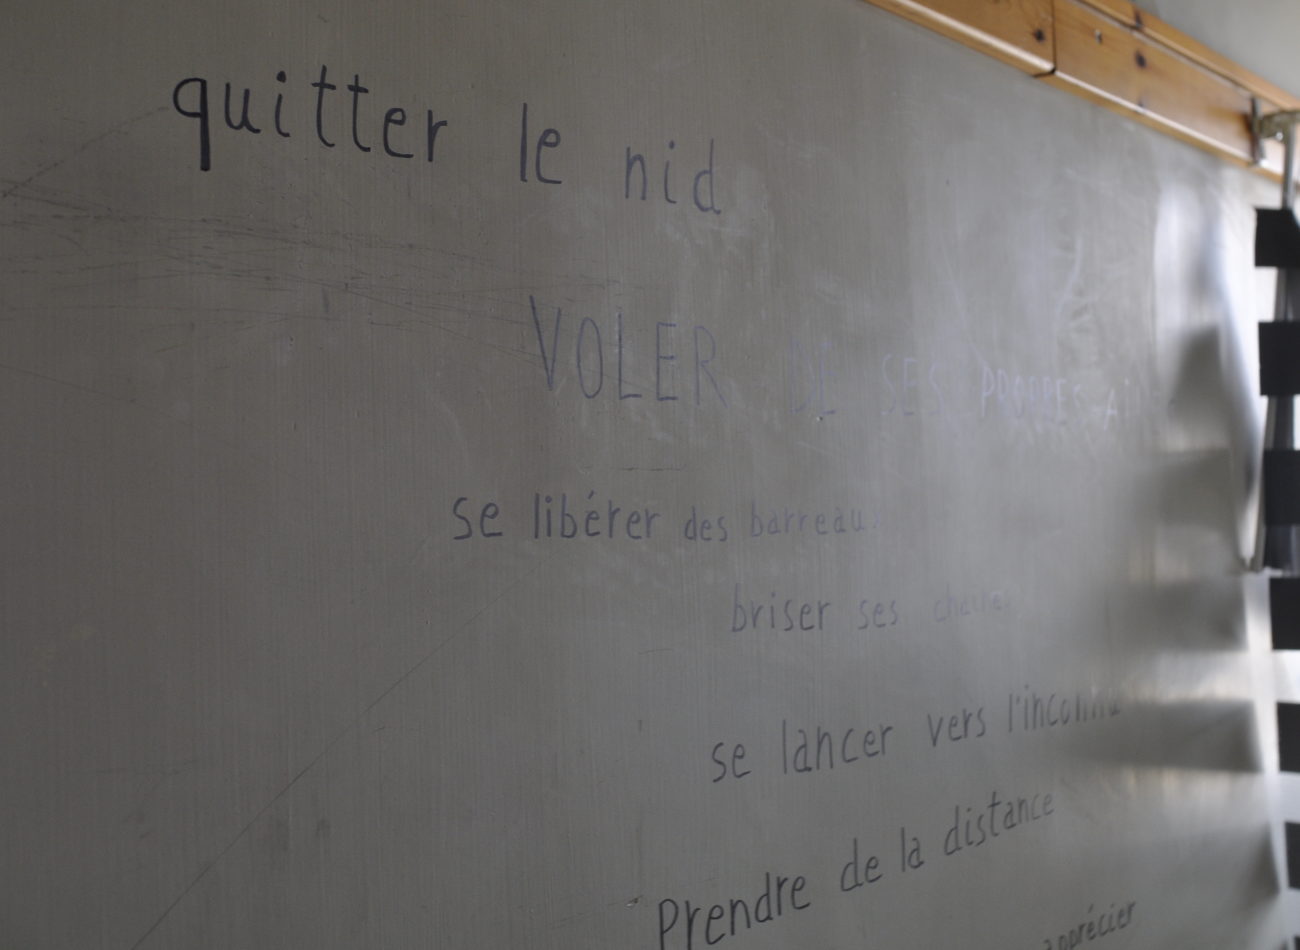 quitter le nid
VOLER DE SES PROPRES
se libérer des barreaux
briser ses chaines
se lancer vers l'inconnu
Prendre de la distance
apprécier